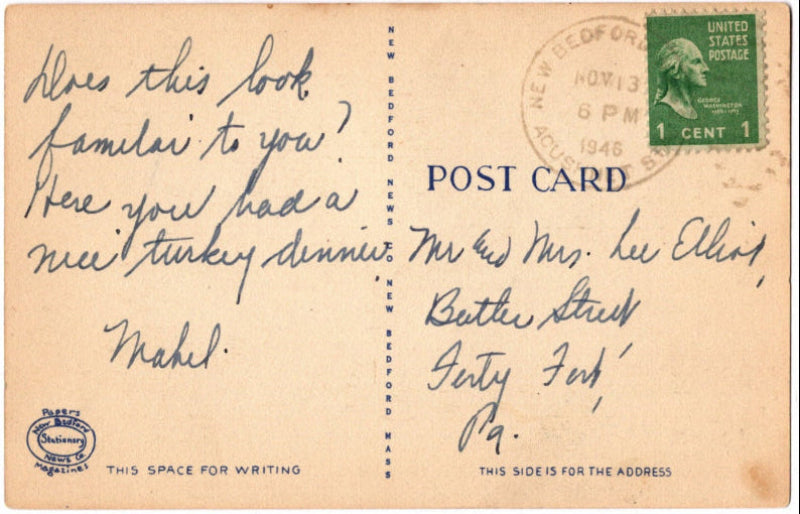 Does this look
familar to you?
Here you had a
nice turkey dinner
Mabel.
Papers
New Bedford
Stationery
News Co
Magazines
THIS SPACE FOR WRITING
NEW BEDFORD NEWS CO NEW BEDFORD MASS
NEW BEDFORD
NOV 13
6 PM
1946
ACUSHNET ST
UNITED
STATES
POSTAGE
GEORGE
WASHINGTON
1 CENT 1
POST CARD
Mr and Mrs. Lee Elliot,
Butler Street
Forty Fort,
Pa.
THIS SIDE IS FOR THE ADDRESS